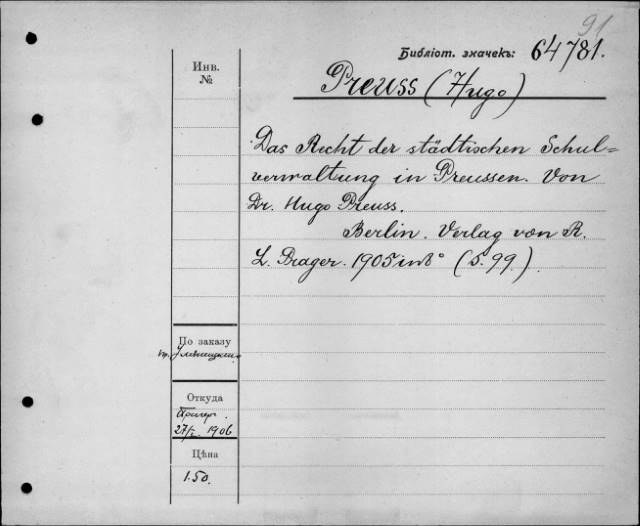 91
Библіот. значекъ: 64781.
Инв.
№
Preuss (Hugo)
Das Recht der städtischen Schul=
verwaltung in Preussen. Von
Dr. Hugo Preuss.
Berlin. Verlag von R.
L. Prager. 1905 in 8° (S. 99.)
По заказу
Откуда
Прагер.
1906
Цѣна
1.50.